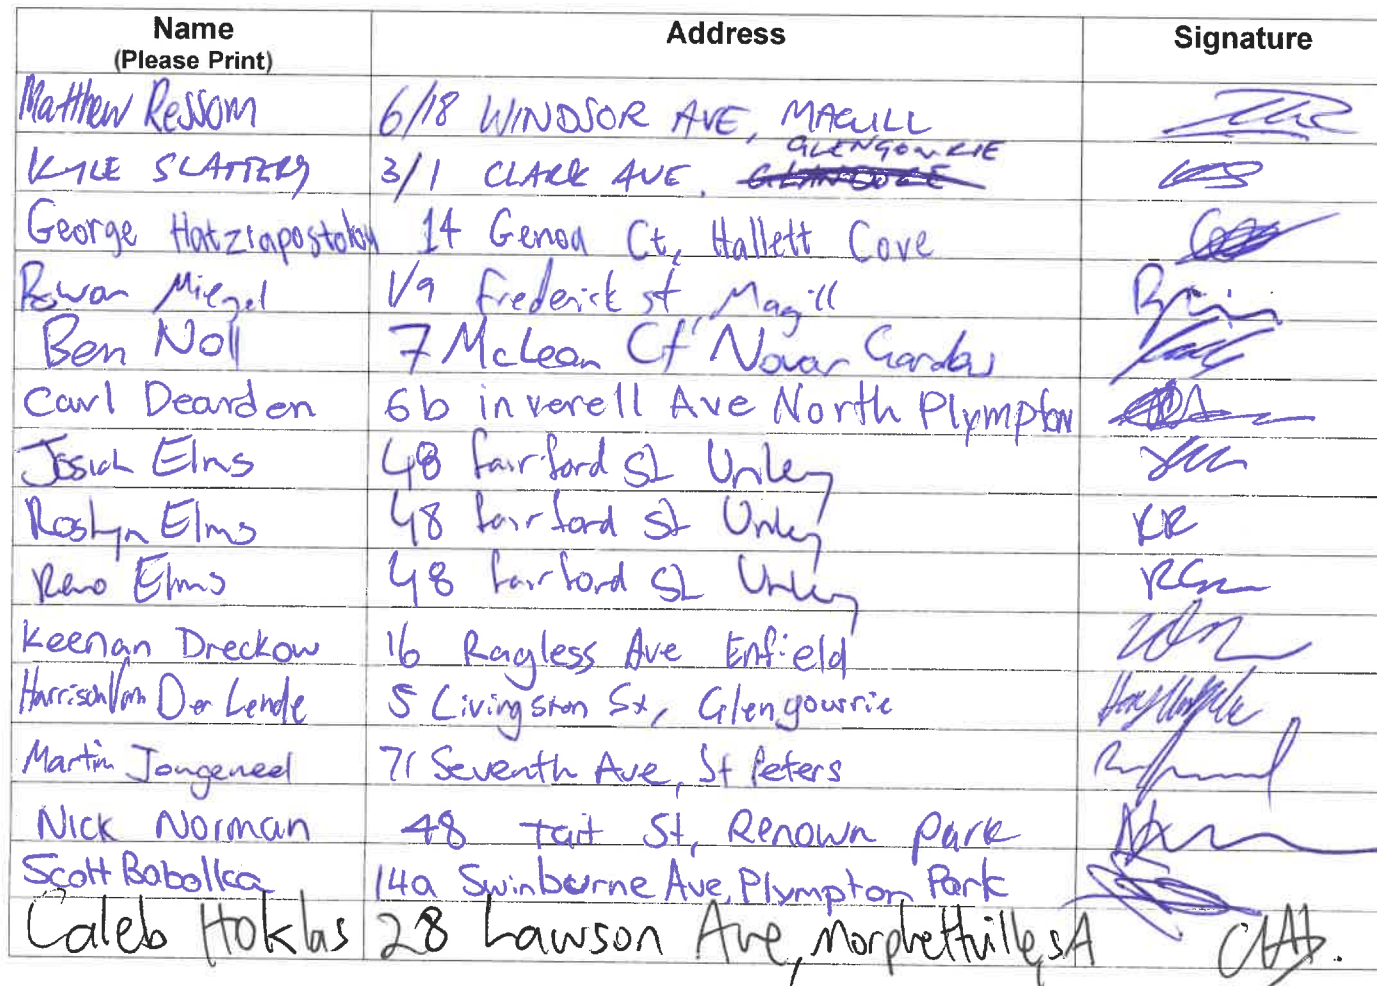 Name Address Signature
(Please Print)
Matthew Ressom 6/18 WINDSOR AVE, MAGILL
KYLE SLATTERY 3/1 CLARK AVE, GLENGOWRIE
George Hatziapostolou 14 Genoa Ct, Hallett Cove
Rowan Miegel 1/9 Frederick st, Magill
Ben Noll 7 McLean Ct Novar Gardens
Carl Dearden 6b inverell Ave North Plympton
Josiah Elms 48 fairford St Unley
Roslyn Elms 48 fairford St Unley
Reno Elms 48 fairford St Unley
Keenan Dreckow 16 Ragless Ave Enfield
Harrison Van Der Lende 5 Livingston St, Glengowrie
Martin Jongeneel 71 Seventh Ave, St Peters
Nick Norman 48 Tait St, Renown Park
Scott 14a Swinburne Ave, Plympton Park
Caleb Hoklas 28 Lawson Ave, Morphettville, SA